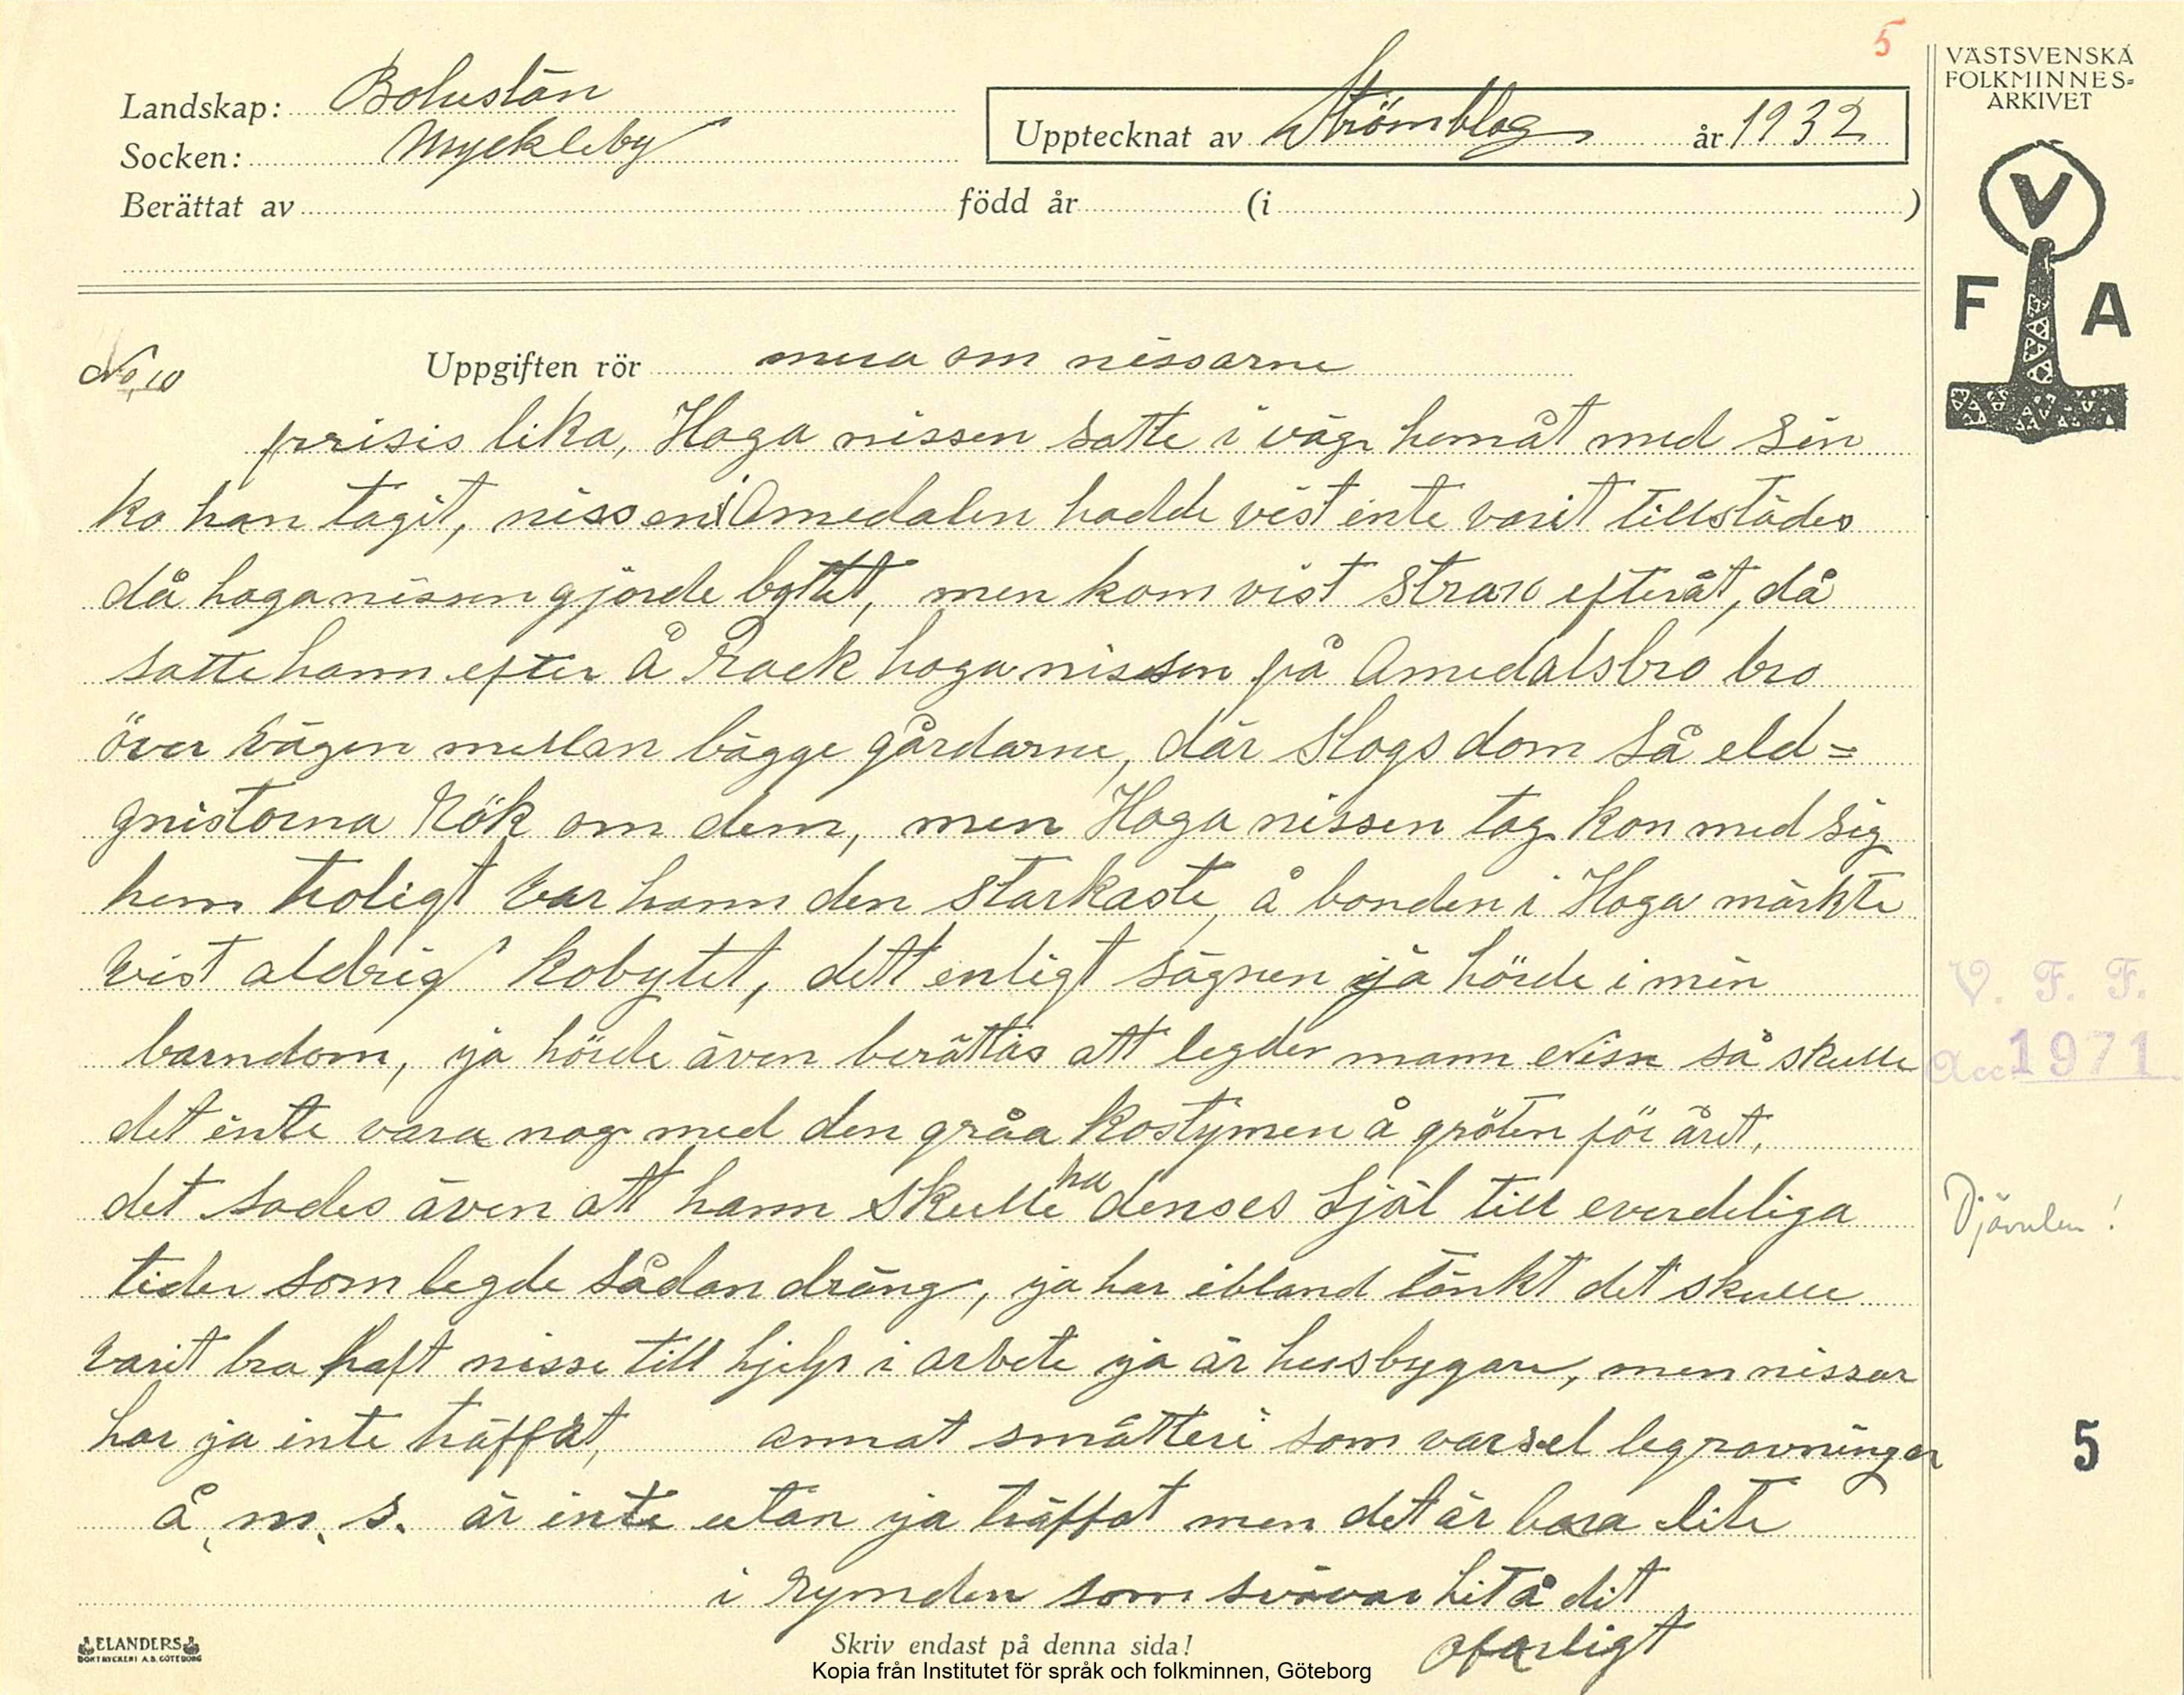 5
VÄSTSVENSKA
FOLKMINNES=
ARKIVET
Landskap: Bohuslän
Socken: Myckleby
Upptecknat av Strömblog år 1932
Berättat av född år (i )
V
F A
No 10 Uppgiften rör mera om nissarne
prisis lika, Haga nissen satte i väg hemåt med sin
ko han tagit, nissen i Amedalen hadde vist inte varit tillstädes
då haganissen gjorde byttet, men kom vist strax efteråt, då
satte hann efter å rack haga nissen på Amedalsbro bro
över vägen mellan bägge gårdarne, där slogs dom så eld=
gnistorna rök om dem, men Haga nissen tog kon med sig
hem troligt var hann den starkaste, å bonden i Haga märkte
vist aldrig kobytet, dett enligt sägnen ja hörde i min
barndom, ja hörde även berättas att legder mann Nisse så skulle
det inte vara nog med den gråa kostymen å gröten för året,
det sades även att hann skulle ha denses själ till everdeliga
tider som legde sådan dräng, ja har ibland tänkt det skulle
varit bra haft nisse till hjelp i arbete ja är husbygare, men nissar
har ja inte träffat, annat smätteri som varsel begravningar
å, m, s. är inte utan ja träffat men det är bara lite
i rymden som svävar hit å dit
ofarligt
V. F. F.
Acc 1971
Djävulen!
5
ELANDERS
BOKTRYCKERI A.B. GÖTEBORG
Skriv endast på denna sida!
Kopia från Institutet för språk och folkminnen, Göteborg